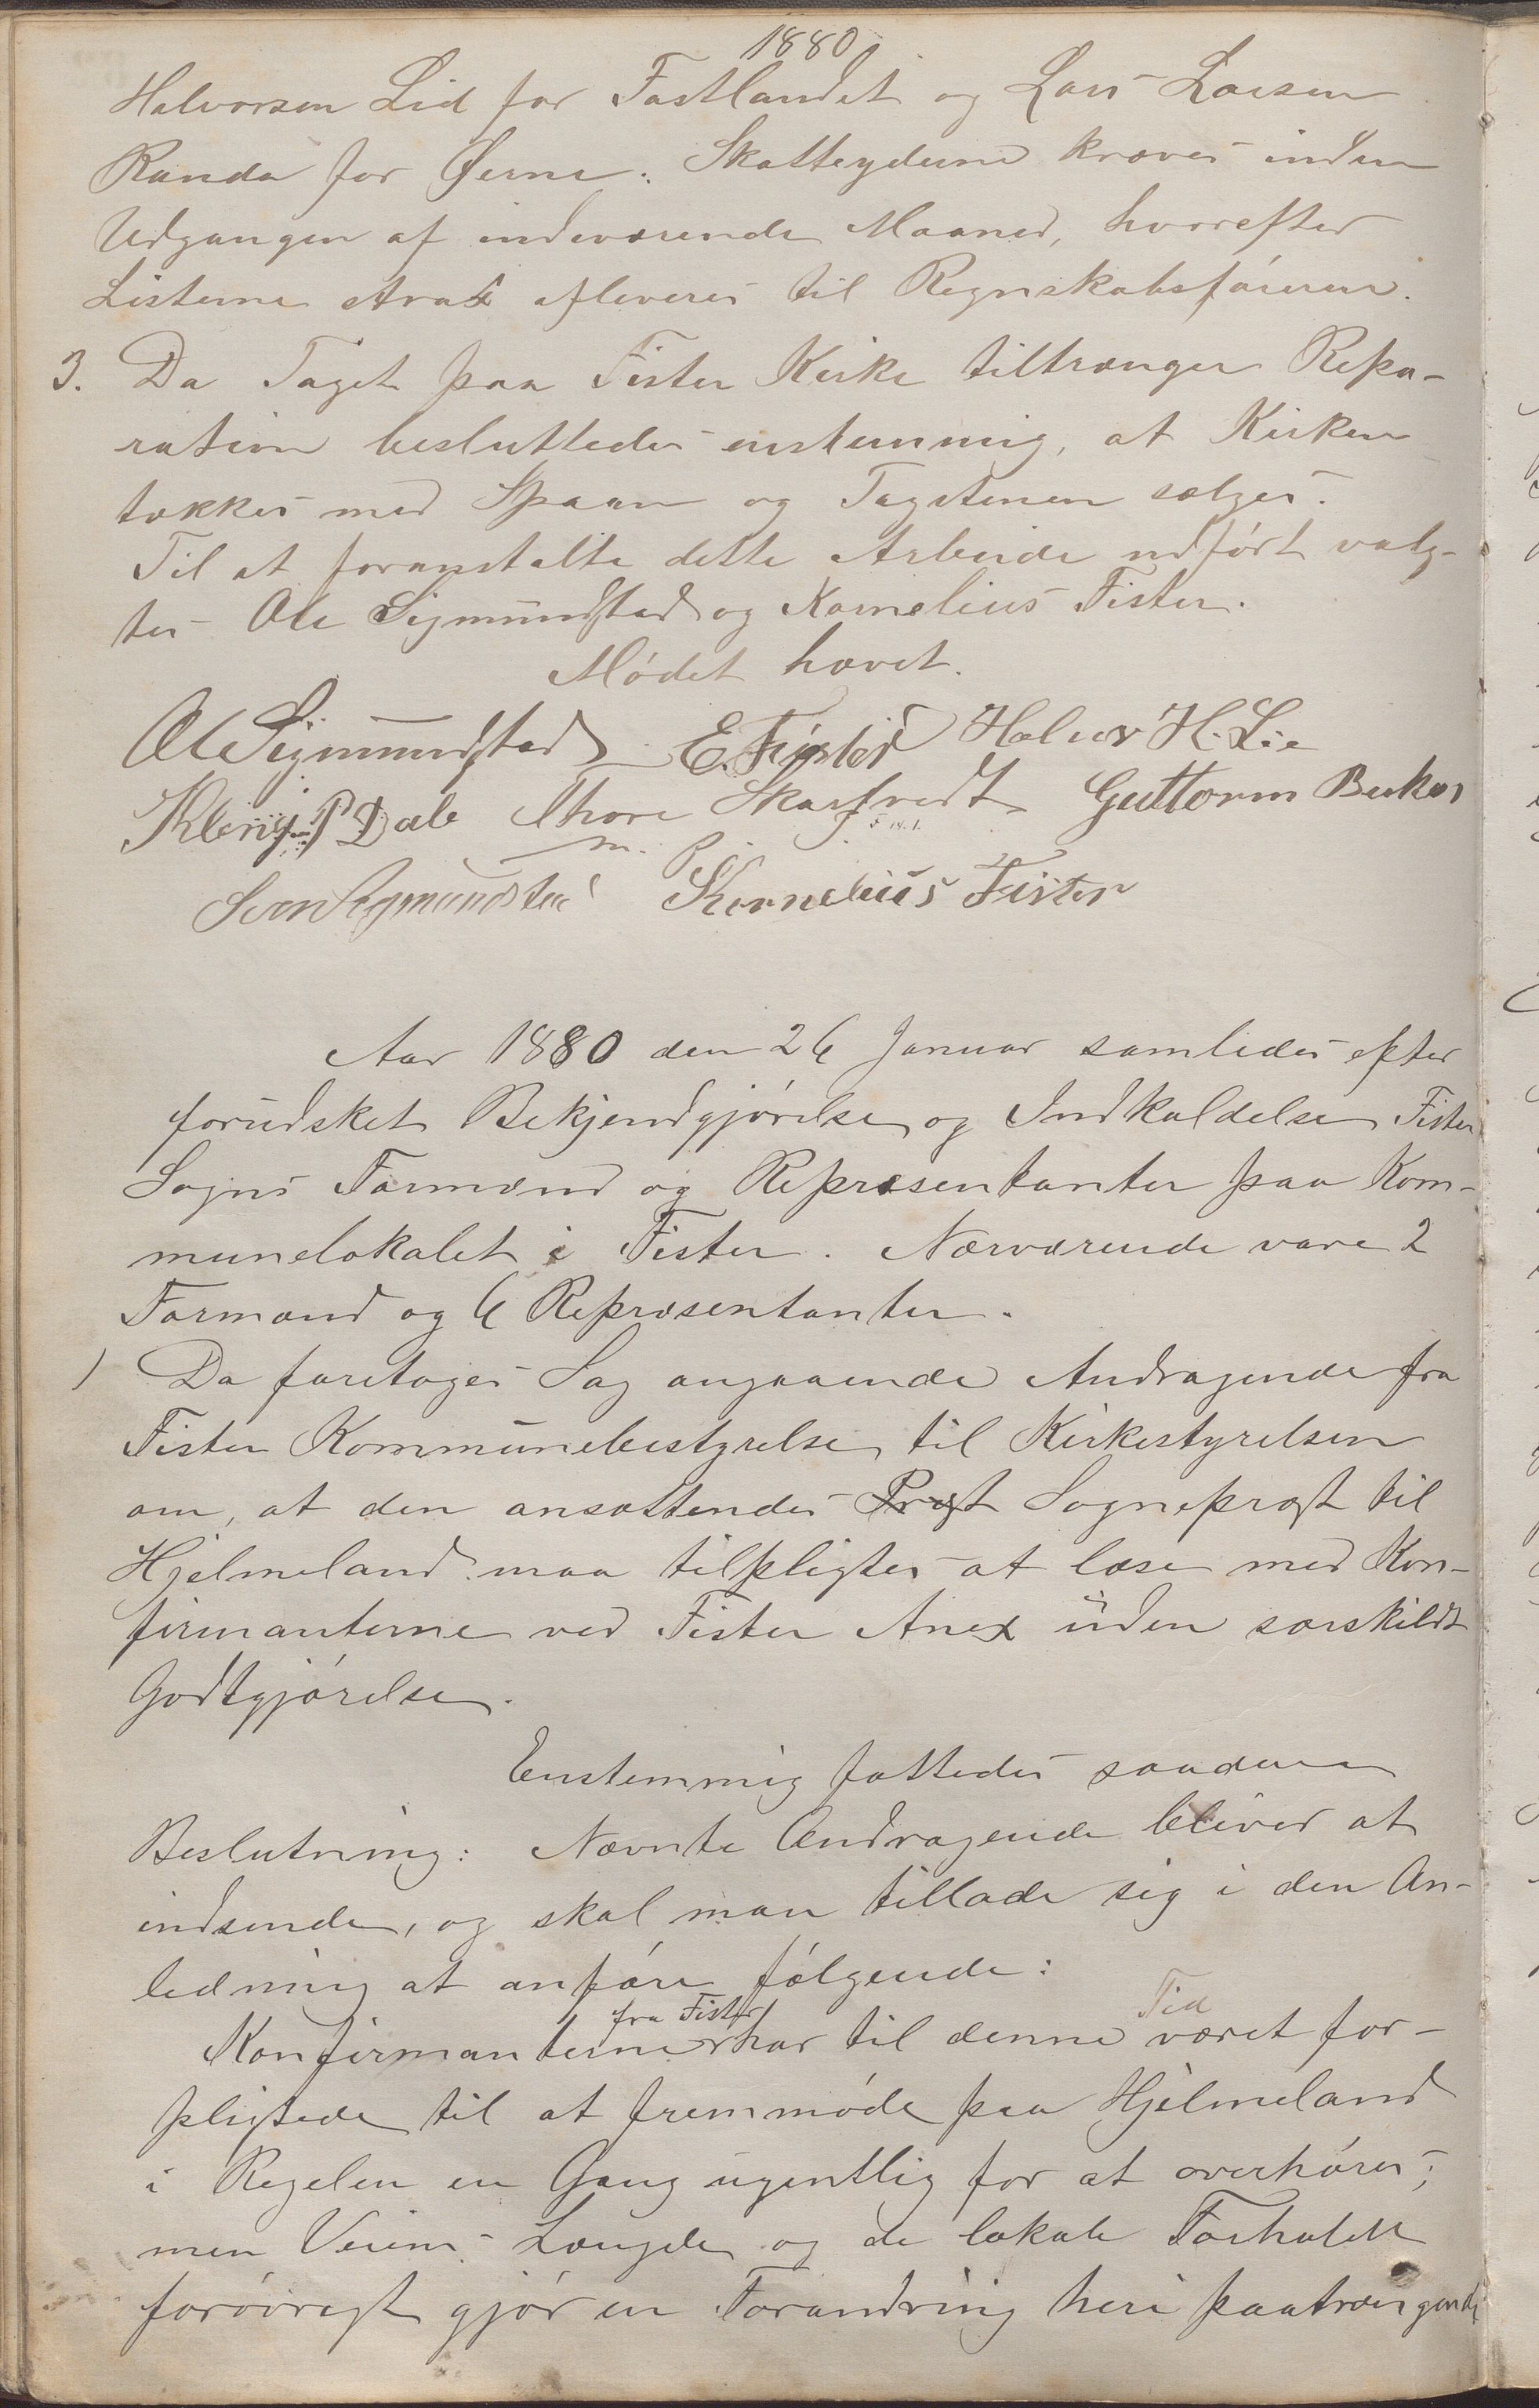 1880
Halvorsen Lid for Fastlandet og Lars Larsen
Randa for Øerne. Skatteyderne kræves inden
Udgangen af indeværende Maaned, hvorefter
Listerne strax afleveres til Regnskabsføreren.
3. Da Taget paa Fister Kirke tiltrænger Repa-
ration besluttedes enstemmig, at Kirken
tækkes med Spaan og Tagstenen sælges.
Til at foranstalte dette Arbeide udført valg-
tes Ole Sigmundstad og Kornelius Fister.
Mødet hævet.
Ole Sigmundstad E. Fister Halvor H. Lie
Kleng P Dale Thore Skarfvedt Guttorm
Sven Sigmundstad Kornelius Fister
Aar 1880 den 26 Januar samledes efter
forudsket Bekjendgjørelse og Indkaldelse Fister
Sogns Formænd og Repræsentanter paa Kom-
munelokalet i Fister. Nærværende vare 2
Formænd og 6 Repræsentanter.
1 Da foretoges Sag angaaende Andragende fra
Fister Kommunebestyrelse til Kirkestyrelsen
om, at den ansættendes Præst Sognepræst til
Hjelmeland maa tilpligtes at læse med Kon-
firmanterne ved Fister Anex uden særskildt
Godtgjørelse.
Enstemmig fattedes saadan
Beslutning: Nævnte Andragende bliver at
indsende, og skal man tillade sig i den An-
ledning at anføre følgende:
fra Fister Tid
Konfirmanterne har til denne været for-
pligtede til at fremmøde paa Hjelmeland
i Regelen en Gang ugentlig for at overhøres;
men Veiens Længde og de lokale Forholde
forøvrigt gjør en Forandring heri paatrængende